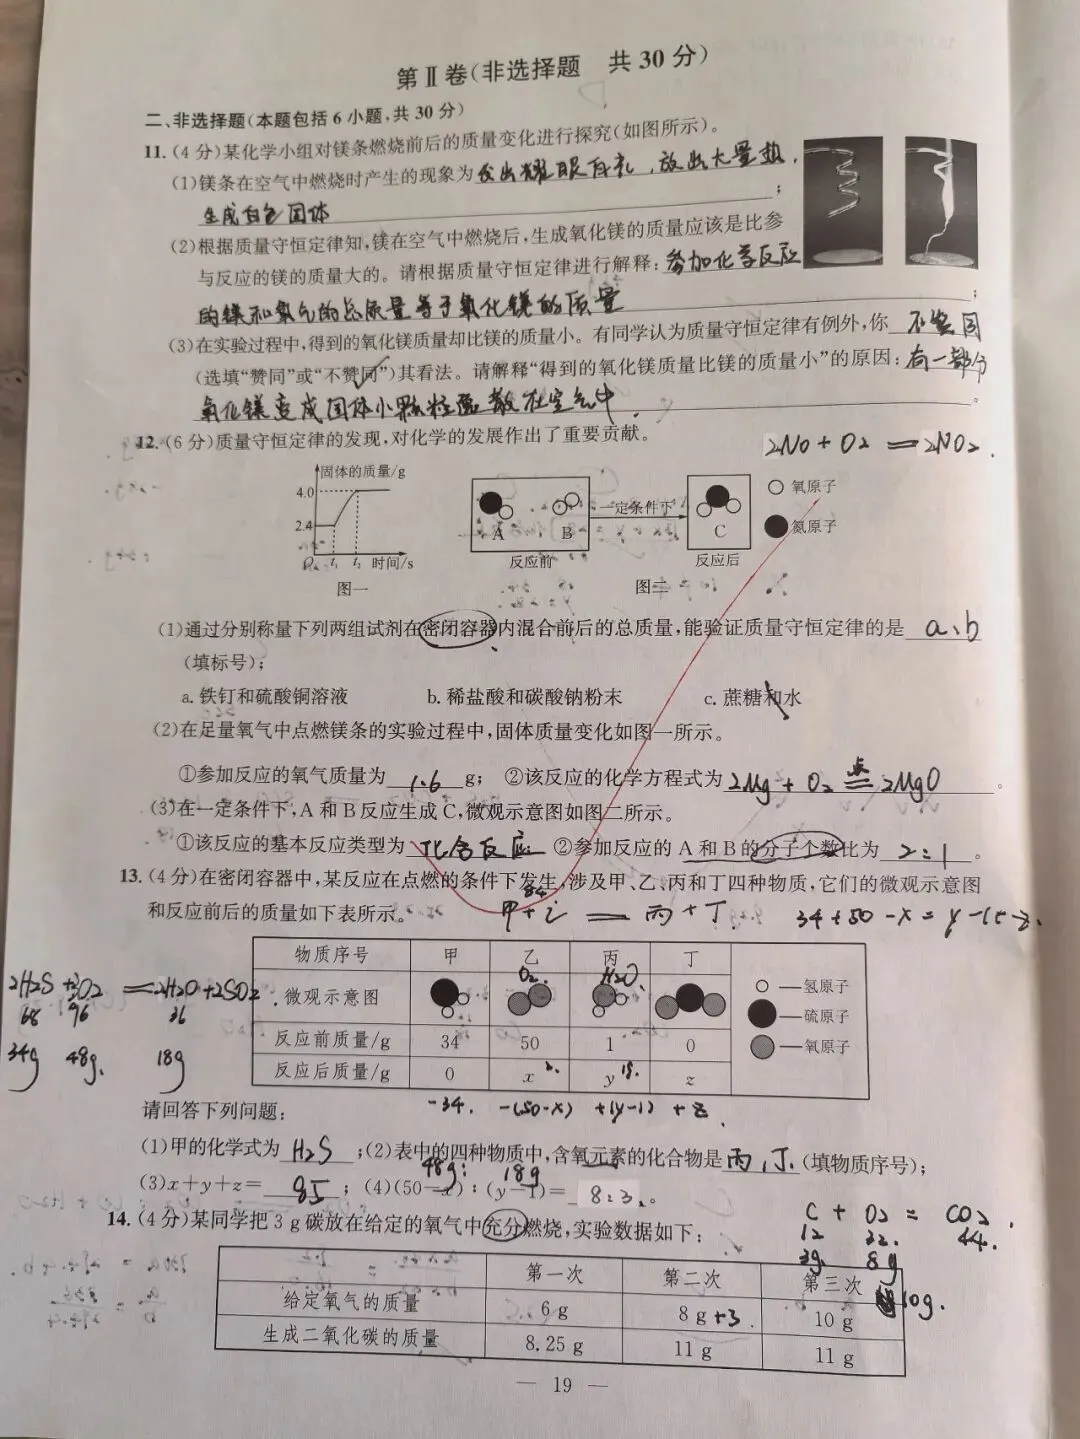 第Ⅱ卷(非选择题 共30分)
二、非选择题(本题包括6小题,共30分)
11.(4分)某化学小组对镁条燃烧前后的质量变化进行探究(如图所示)。
(1)镁条在空气中燃烧时产生的现象为发出耀眼白光,放出大量热,
生成白色固体;
(2)根据质量守恒定律知,镁在空气中燃烧后,生成氧化镁的质量应该是比参
与反应的镁的质量大的。请根据质量守恒定律进行解释:参加化学反应
的镁和氧气的总质量等于氧化镁的质量;
(3)在实验过程中,得到的氧化镁质量却比镁的质量小。有同学认为质量守恒定律有例外,你不赞同
(选填“赞同”或“不赞同”)其看法。请解释“得到的氧化镁质量比镁的质量小”的原因:有一部分
氧化镁变成固体小颗粒 散在空气中。
12.(6分)质量守恒定律的发现,对化学的发展作出了重要贡献。
2NO + O2 = 2NO2
固体的质量/g
4.0
2.4
O t1 t2 时间/s
图一
A B 一定条件下 C
反应前 反应后
图二
氧原子
氮原子
(1)通过分别称量下列两组试剂在密闭容器内混合前后的总质量,能验证质量守恒定律的是 a、b
(填标号);
a. 铁钉和硫酸铜溶液 b. 稀盐酸和碳酸钠粉末 c. 蔗糖和水
(2)在足量氧气中点燃镁条的实验过程中,固体质量变化如图一所示。
①参加反应的氧气质量为 1.6 g; ②该反应的化学方程式为 2Mg + O2 点 = 2MgO。
(3)在一定条件下,A和B反应生成C,微观示意图如图二所示。
①该反应的基本反应类型为 化合反应 ②参加反应的A和B的分子个数比为 2:1。
13.(4分)在密闭容器中,某反应在点燃的条件下发生,涉及甲、乙、丙和丁四种物质,它们的微观示意图
和反应前后的质量如下表所示。
84
甲+乙 = 丙+丁 34+50-x=y-1+z
物质序号 甲 乙 丙 丁
O2 H2O
微观示意图
反应前质量/g 34 50 1 0
反应后质量/g 0 x y z
—氢原子
—硫原子
—氧原子
2H2S +3O2 = 2H2O+2SO2
68 96 36
34g 48g 18g
-34 -(50-x) +(y-1) +z
请回答下列问题:
(1)甲的化学式为 H2S ;(2)表中的四种物质中,含氧元素的化合物是 丙,丁 (填物质序号);
48g: 18g
(3)x+y+z= 85 ;(4)(50-x):(y-1)= 8:3 。
14.(4分)某同学把3 g碳放在给定的氧气中充分燃烧,实验数据如下:
C + O2 = CO2
12 32 44
3g 8g
10g
第一次 第二次 第三次
给定氧气的质量 6 g 8 g +3 10 g
生成二氧化碳的质量 8.25 g 11 g 11 g
— 19 —